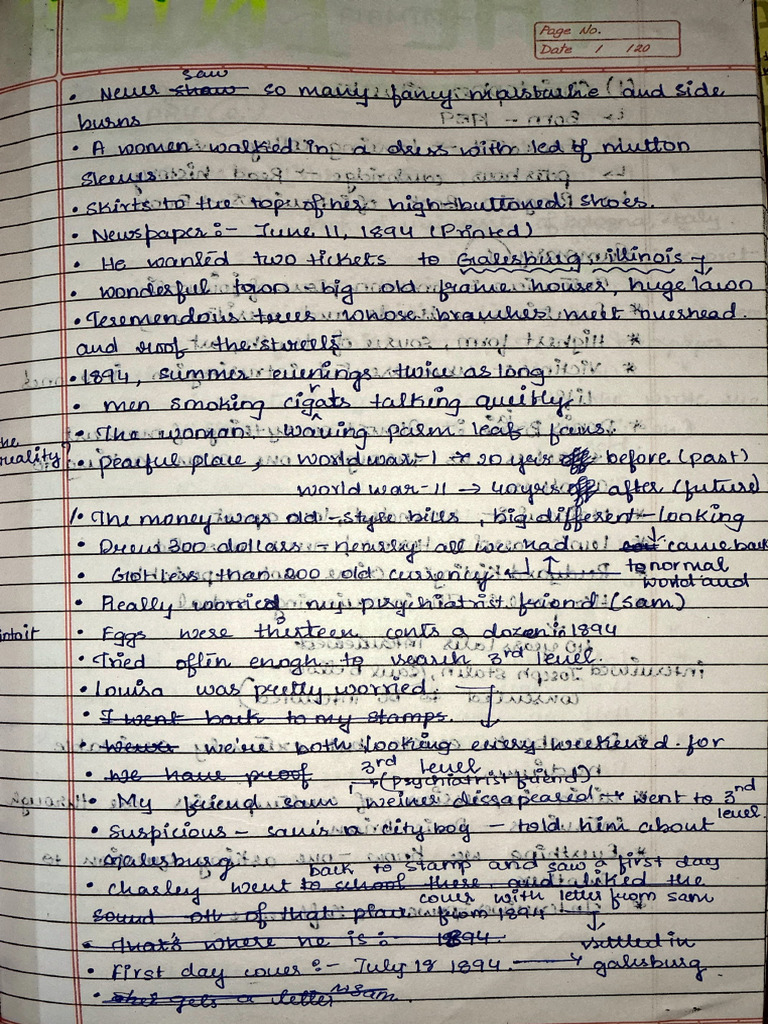 Page No.
Date / /20
• Never shaw saw so many fancy moustache and side
burns
• A women walked in a dress with leg of mutton
sleeves
• Skirts to the top of her high-buttoned shoes.
• Newspaper :- June 11, 1894 (Printed)
• He wanted two tickets to Galesburg, illinois →
• wonderful town - big old frame houses, huge lawn
• Teremendous trees whose branches meet overhead.
and roof the streets
• 1894, summer evenings twice as long
• men smoking cigars talking quietly.
• The woman, waving palm leaf fans.
the
reality
• peaful place, world war-I → 20 years before (past)
world war-II → 40yrs after (future)
• The money was old-style bills, big different-looking
• Drew 300 dollars - nearly all we had came back
• Got less than 200 old currency to normal
world and
• Really worried my psychiatrist friend (Sam)
• Eggs were thirteen cents a dozen in 1894
• Tried often enogh to search 3rd level.
• Louisa was pretty worried.
• I went back to my stamps.
• we're both looking every weekend for
• we have proof 3rd level
(Psychiatrist friend)
• My friend Sam Weiner dissapeared → went to 3rd
level.
• Suspicious - Sam's a city boy - told him about
Galesburg
back to stamp and saw a first day
• Charley went to school there, and liked the
cover with letter from Sam
sound of that place from 1894
• That's where he is :- 1894
settled in
• First day cover :- July 18 1894. → galesburg
• she gets a letter Sam.